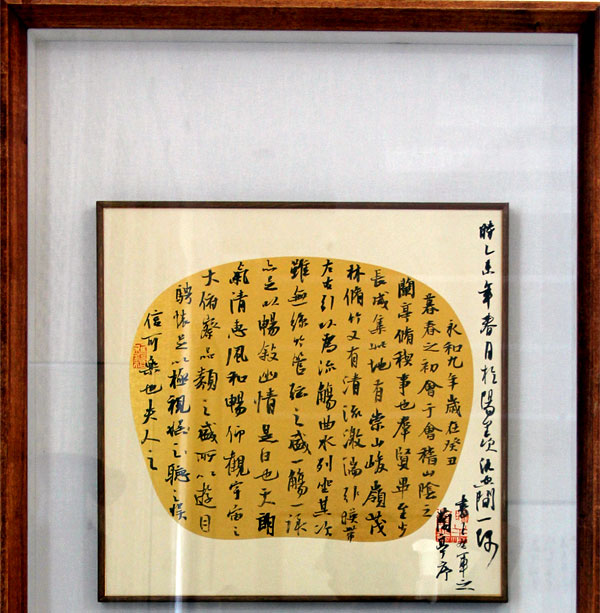 時乙未年春月於陽羨
永和九年歲在癸丑
暮春之初會于會稽山陰之
蘭亭脩禊事也羣賢畢至少
長咸集此地有崇山峻嶺茂
林脩竹又有清流激湍暎帶
左右引以為流觴曲水列坐其次
雖無絲竹管弦之盛一觴一詠
亦足以暢敘幽情是日也天朗
氣清惠風和暢仰觀宇宙之
大俯察品類之盛所以遊目
騁懷足以極視聽之娛
信可樂也夫人之
書王右軍之
蘭亭序